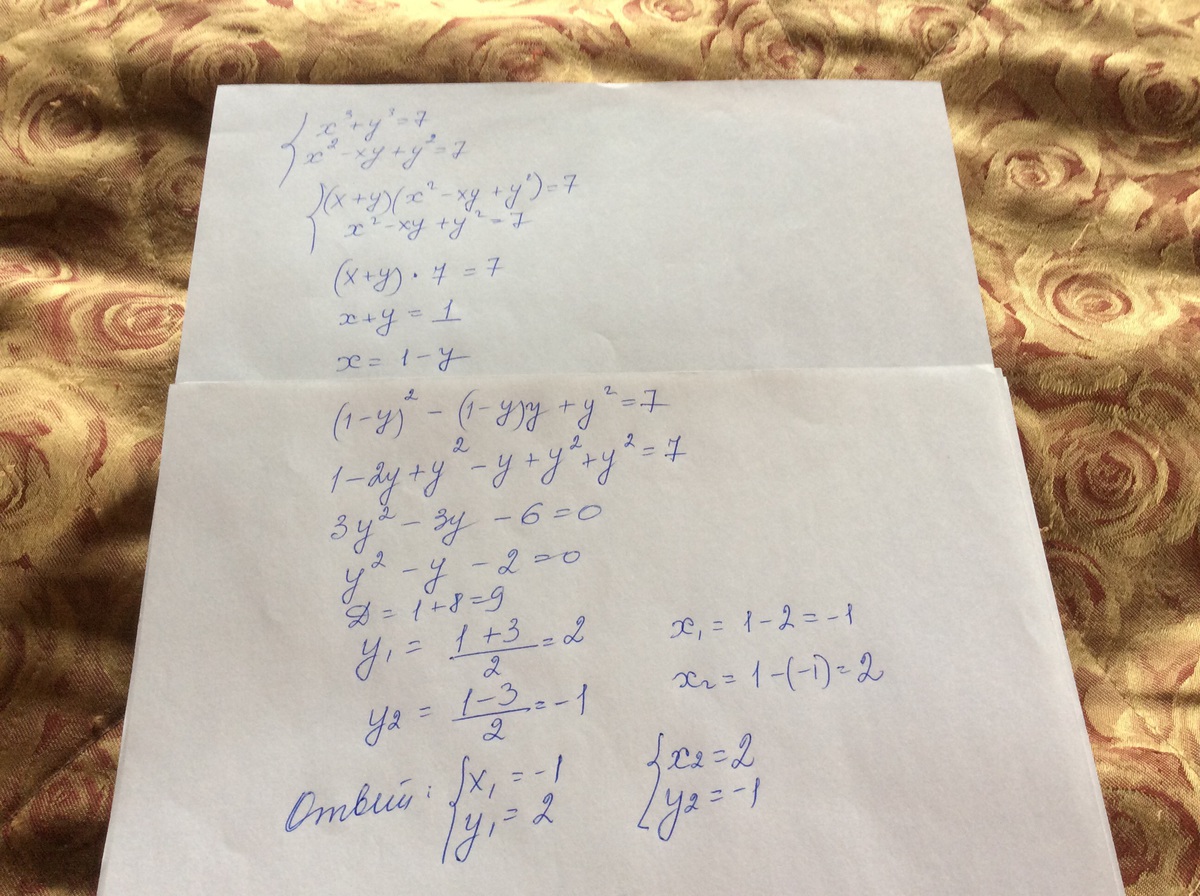 { x³ + y³ = 7
x² - xy + y² = 7
{ (x + y)(x² - xy + y²) = 7
x² - xy + y² = 7
(x+y) · 7 = 7
x + y = 1
x = 1 - y
(1-y)² - (1-y)y + y² = 7
1 - 2y + y² - y + y² + y² = 7
3y² - 3y - 6 = 0
y² - y - 2 = 0
D = 1 + 8 = 9
y₁ = (1+3)/2 = 2 x₁ = 1 - 2 = -1
y₂ = (1-3)/2 = -1 x₂ = 1 - (-1) = 2
Ответ: { x₁ = -1 { x₂ = 2
y₁ = 2 y₂ = -1